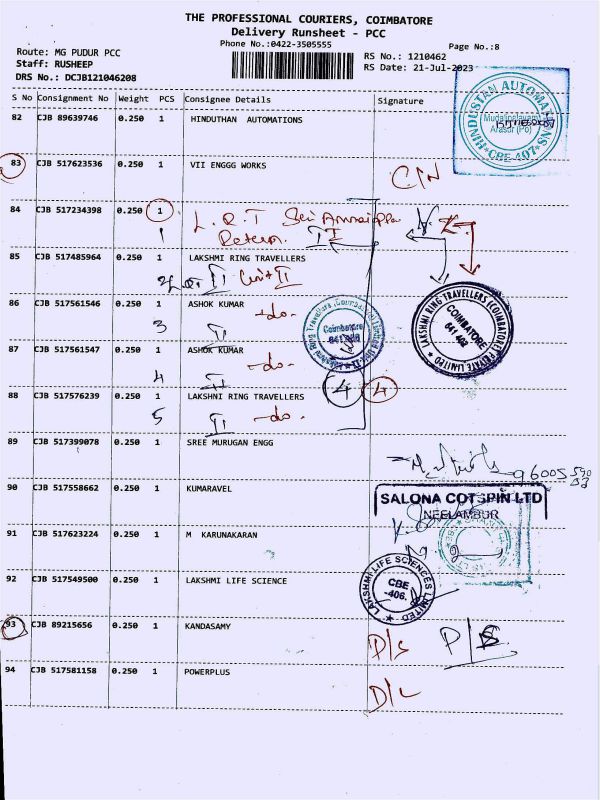 THE PROFESSIONAL COURIERS, COIMBATORE
Delivery Runsheet - PCC
Phone No.:0422-3505555
Page No.:8
Route: MG PUDUR PCC
RS No.: 1210462
Staff: RUSHEEP
RS Date: 21-Jul-2023
DRS No.: DCJB121046208
S No Consignment No Weight PCS Consignee Details Signature
82 CJB 89639746 0.250 1 HINDUTHAN AUTOMATIONS
HINDUSTAN AUTOMATIONS
Arasur (Po)
CBE-407
83 CJB 517623536 0.250 1 VII ENGGG WORKS
C/N
84 CJB 517234398 0.250 1 L.R.T
Return II
1
85 CJB 517485964 0.250 1 LAKSHMI RING TRAVELLERS
Unit II
86 CJB 517561546 0.250 1 ASHOK KUMAR -do-
3 II
LAKSHMI RING TRAVELLERS (COIMBATORE) PRIVATE LIMITED
COIMBATORE
641 402
87 CJB 517561547 0.250 1 ASHOK KUMAR -do-
4 II
4 4
88 CJB 517576239 0.250 1 LAKSHNI RING TRAVELLERS
5 II -do-
89 CJB 517399078 0.250 1 SREE MURUGAN ENGG
96005
90 CJB 517558662 0.250 1 KUMARAVEL
SALONA COTSPIN LTD
NEELAMBUR
91 CJB 517623224 0.250 1 M KARUNAKARAN
92 CJB 517549500 0.250 1 LAKSHMI LIFE SCIENCE
LAKSHMI LIFE SCIENCES LIMITED
CBE
-406.
93 CJB 89215656 0.250 1 KANDASAMY
D/S P/S
94 CJB 517581158 0.250 1 POWERPLUS
D/L